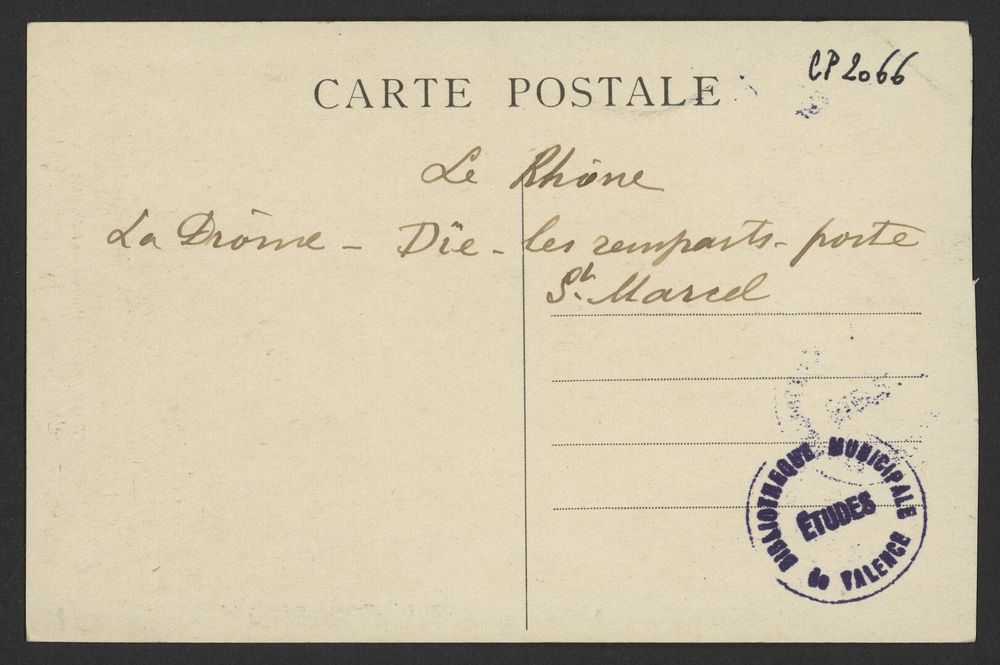 CP 2066
CARTE POSTALE
Le Rhône
La Drôme - Dïe - les remparts - porte
St. Marcel
BIBLIOTHEQUE MUNICIPALE
ÉTUDES
de VALENCE